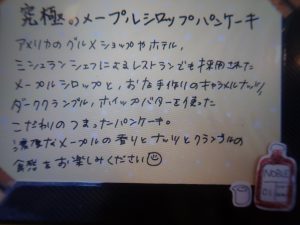 究極のメープルシロップパンケーキ
アメリカのグルメショップやホテル、
ミシュランシェフによるレストランでも採用された
メープルシロップと、お店手作りのキャラメルナッツ、
ダーククランブル、ホイップバターを使った
こだわりのつまったパンケーキ。
濃厚なメープルの香りとナッツとクランブルの
食感をお楽しみください
NOBLE